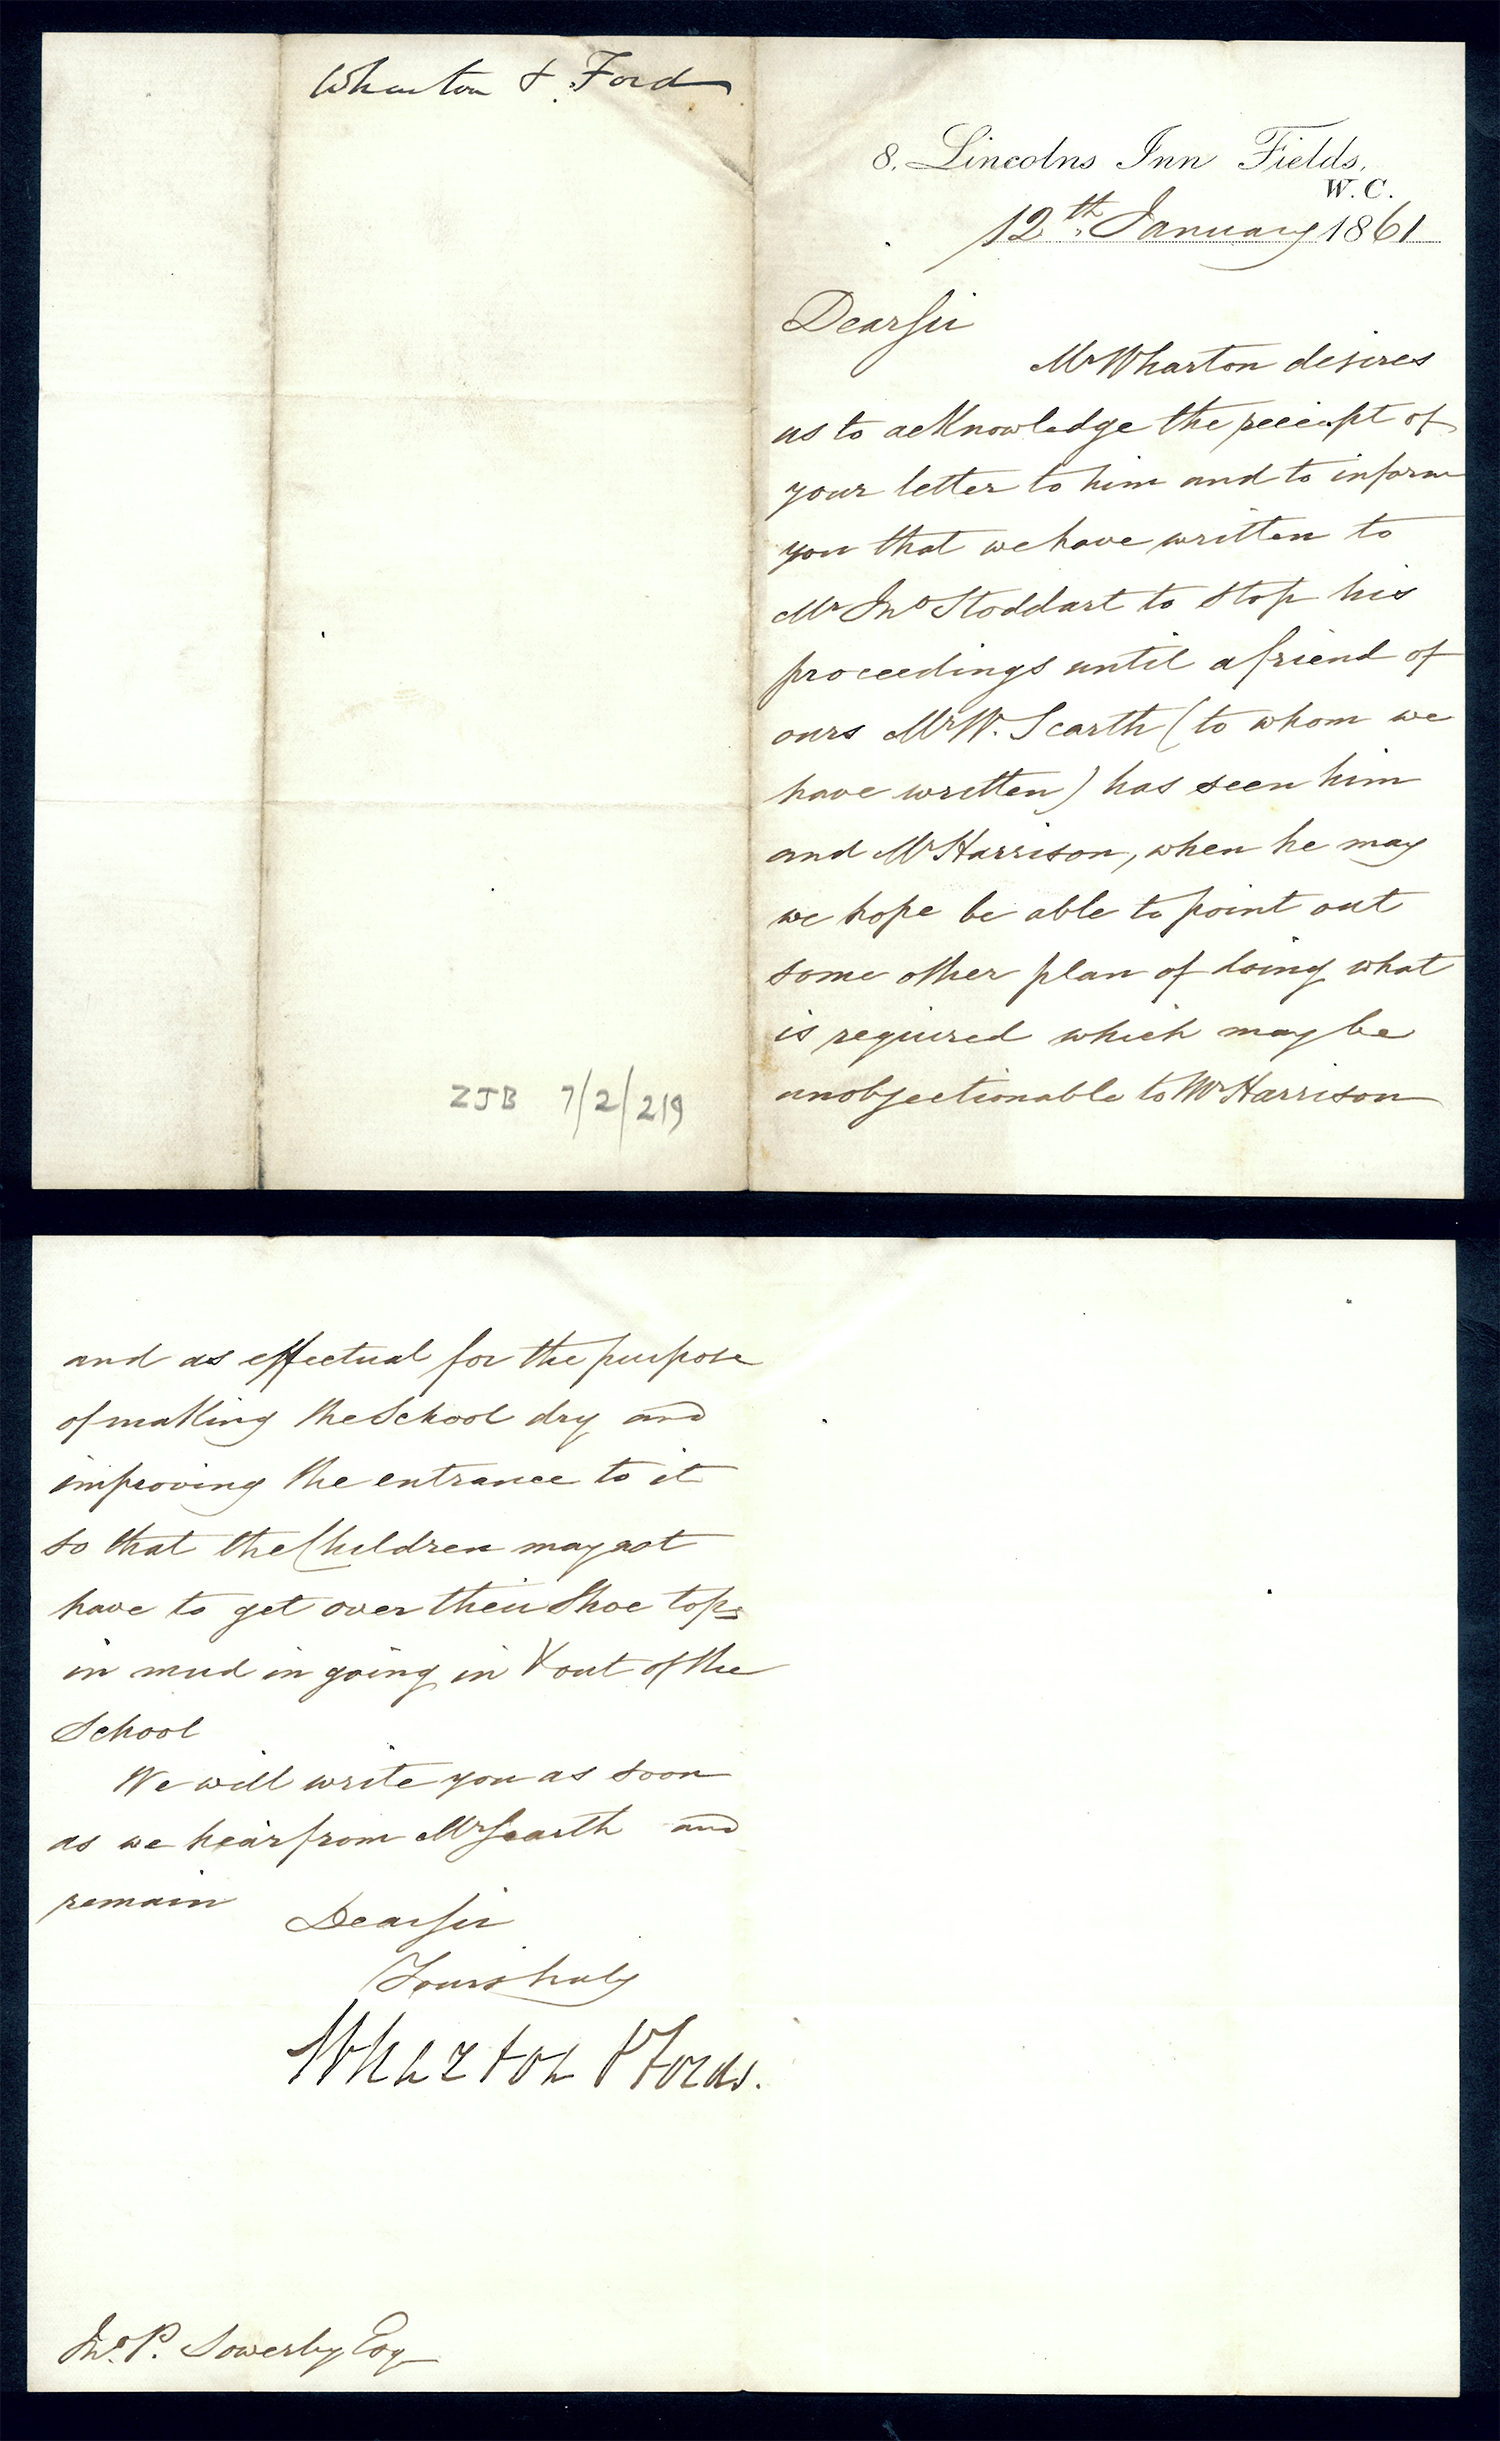 Wharton & Ford
ZJB 7/2/219
8, Lincolns Inn Fields,
W.C.
12th January 1861
Dear Sir
Mr Wharton desires
us to acknowledge the receipt of
your letter to him and to inform
you that we have written to
Mr Jno Stoddart to stop his
proceedings until a friend of
ours Mr W. Scarth (to whom we
have written) has seen him
and Mr Harrison, when he may
we hope be able to point out
some other plan of doing what
is required which may be
unobjectionable to Mr Harrison
and as effectual for the purpose
of making the School dry and
improving the entrance to it
so that the Children may not
have to get over their Shoe tops
in mud in going in & out of the
School
We will write you as soon
as we hear from Mr Scarth and
remain
Dear Sir
Yours truly
Wharton & Fords.
Jno. P. Sowerby Esq